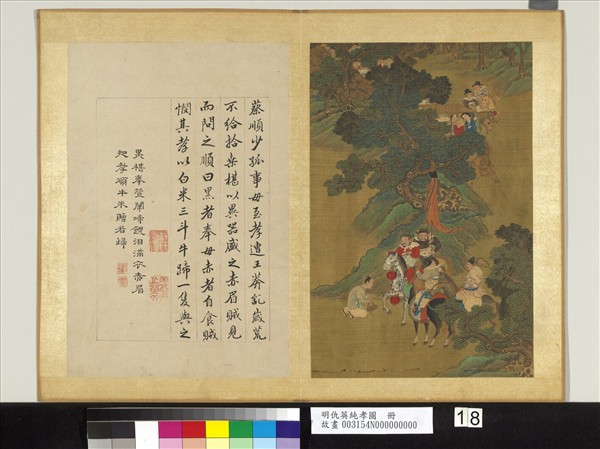 蔡順少孤事母至孝遭王莽亂歲荒
不給拾桑椹以異器盛之赤眉賊見
而問之順曰黑者奉母赤者自食賊
憫其孝以白米三斗牛蹄一隻與之
黑椹奉萱闈啼飢淚滿衣赤眉
知孝順牛米贈君歸
明仇英純孝圖 冊
故畫 003154N000000000
18